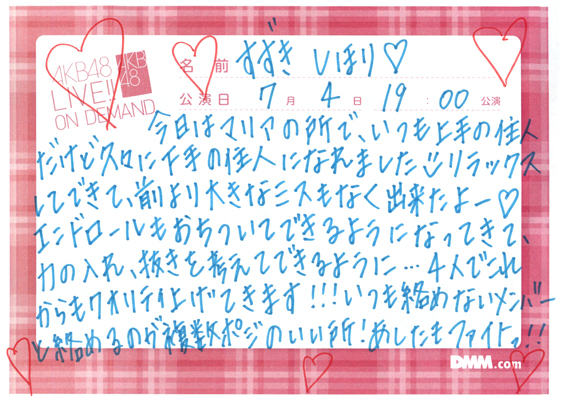 AKB48
LIVE!!
ON DEMAND
AKB
48
名前 すずき しほり♡
公演日 7月 4日 19:00 公演
今日はマリアの所で、いつも上手の住人
だけど久々に下手の住人になれました リラックス
してできて、前より大きなミスもなく出来たよー♡
エンドロールもおちついてできるようになってきて、
力の入れ、抜きを考えてできるように…4人でこれ
からもクオリティ上げてきます!!!いつも絡めないメンバー
と絡めるのが複数ポジのいい所!あしたもファイトっ!!
DMM.com